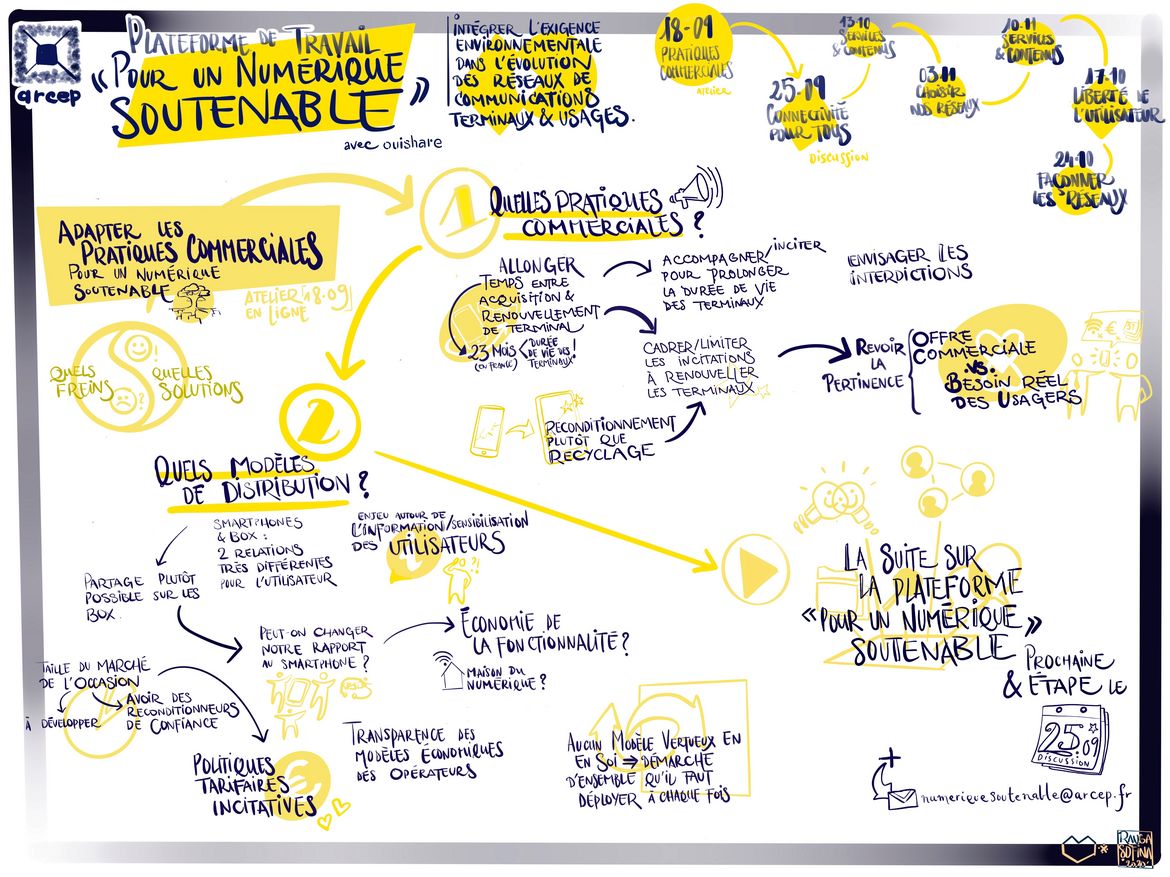 arcep
PLATEFORME DE TRAVAIL
« POUR UN NUMÉRIQUE
SOUTENABLE »
avec ouishare
INTÉGRER L'EXIGENCE
ENVIRONNEMENTALE
DANS L'ÉVOLUTION
DES RÉSEAUX DE
COMMUNICATIONS
TERMINAUX & USAGES.
18-09
PRATIQUES
COMMERCIALES
ATELIER
25-09
CONNECTIVITÉ
POUR TOUS
DISCUSSION
13-10
SERVICES
& CONTENUS
03-11
CHOISIR
NOS RÉSEAUX
10-11
SERVICES
& CONTENUS
17-10
LIBERTÉ DE
L'UTILISATEUR
24-10
FAÇONNER
LES RÉSEAUX
ADAPTER LES
PRATIQUES COMMERCIALES
POUR UN NUMÉRIQUE
SOUTENABLE
ATELIER [18-09]
EN LIGNE
QUELS
FREINS
QUELLES
SOLUTIONS
?
1
QUELLES PRATIQUES
COMMERCIALES ?
ALLONGER
TEMPS ENTRE
ACQUISITION &
RENOUVELLEMENT
DE TERMINAL
23 MOIS
(EN FRANCE)
/ DURÉE
DE VIE DES
TERMINAUX !
ACCOMPAGNER/INCITER
POUR PROLONGER
LA DURÉE DE VIE
DES TERMINAUX
ENVISAGER LES
INTERDICTIONS
CADRER/LIMITER
LES INCITATIONS
À RENOUVELLER
LES TERMINAUX
RECONDITIONNEMENT
PLUTÔT QUE
RECYCLAGE
REVOIR
LA
PERTINENCE
OFFRE
COMMERCIALE
VS.
BESOIN RÉEL
DES USAGERS
2
QUELS MODÈLES
DE DISTRIBUTION ?
SMARTPHONES
& BOX :
2 RELATIONS
TRÈS DIFFÉRENTES
POUR L'UTILISATEUR
ENJEU AUTOUR DE
L'INFORMATION/SENSIBILISATION
DES UTILISATEURS
PARTAGE PLUTÔT
POSSIBLE SUR LES
BOX.
PEUT-ON CHANGER
NOTRE RAPPORT
AU SMARTPHONE ?
ÉCONOMIE DE
LA FONCTIONNALITÉ ?
MAISON DU
NUMÉRIQUE ?
TAILLE DU MARCHÉ
DE L'OCCASION
À DÉVELOPPER
AVOIR DES
RECONDITIONNEURS
DE CONFIANCE
POLITIQUES
TARIFAIRES
INCITATIVES
€
TRANSPARENCE DES
MODÈLES ÉCONOMIQUES
DES OPÉRATEURS
AUCUN MODÈLE VERTUEUX EN
EN SOI ⇒ DÉMARCHE
D'ENSEMBLE QU'IL FAUT
DÉPLOYER À CHAQUE FOIS
LA SUITE SUR
LA PLATEFORME
« POUR UN NUMÉRIQUE »
SOUTENABLE
& PROCHAINE
ÉTAPE LE
25.09
DISCUSSION
+
numeriquesoutenable@arcep.fr